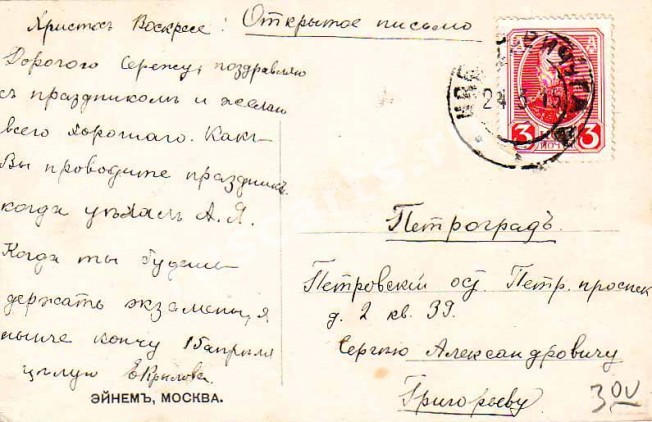 Христосъ Воскресе! Открытое письмо
Дорогого Сережу, поздравляю
съ праздникомъ и желаю
всего хорошаго. Какъ
Вы проводите праздникъ
когда уѣхалъ А.Я.
Когда ты будешь
держать экзамены, я
нынче кончу 15 апрѣля
цѣлую Е Крылова.
ЭЙНЕМЪ, МОСКВА.
24 3 15
3 3
Петроградъ.
Петровскій ост. Петр. проспек
д. 2 кв. 39.
Сергѣю Александровичу
Григорьеву
300